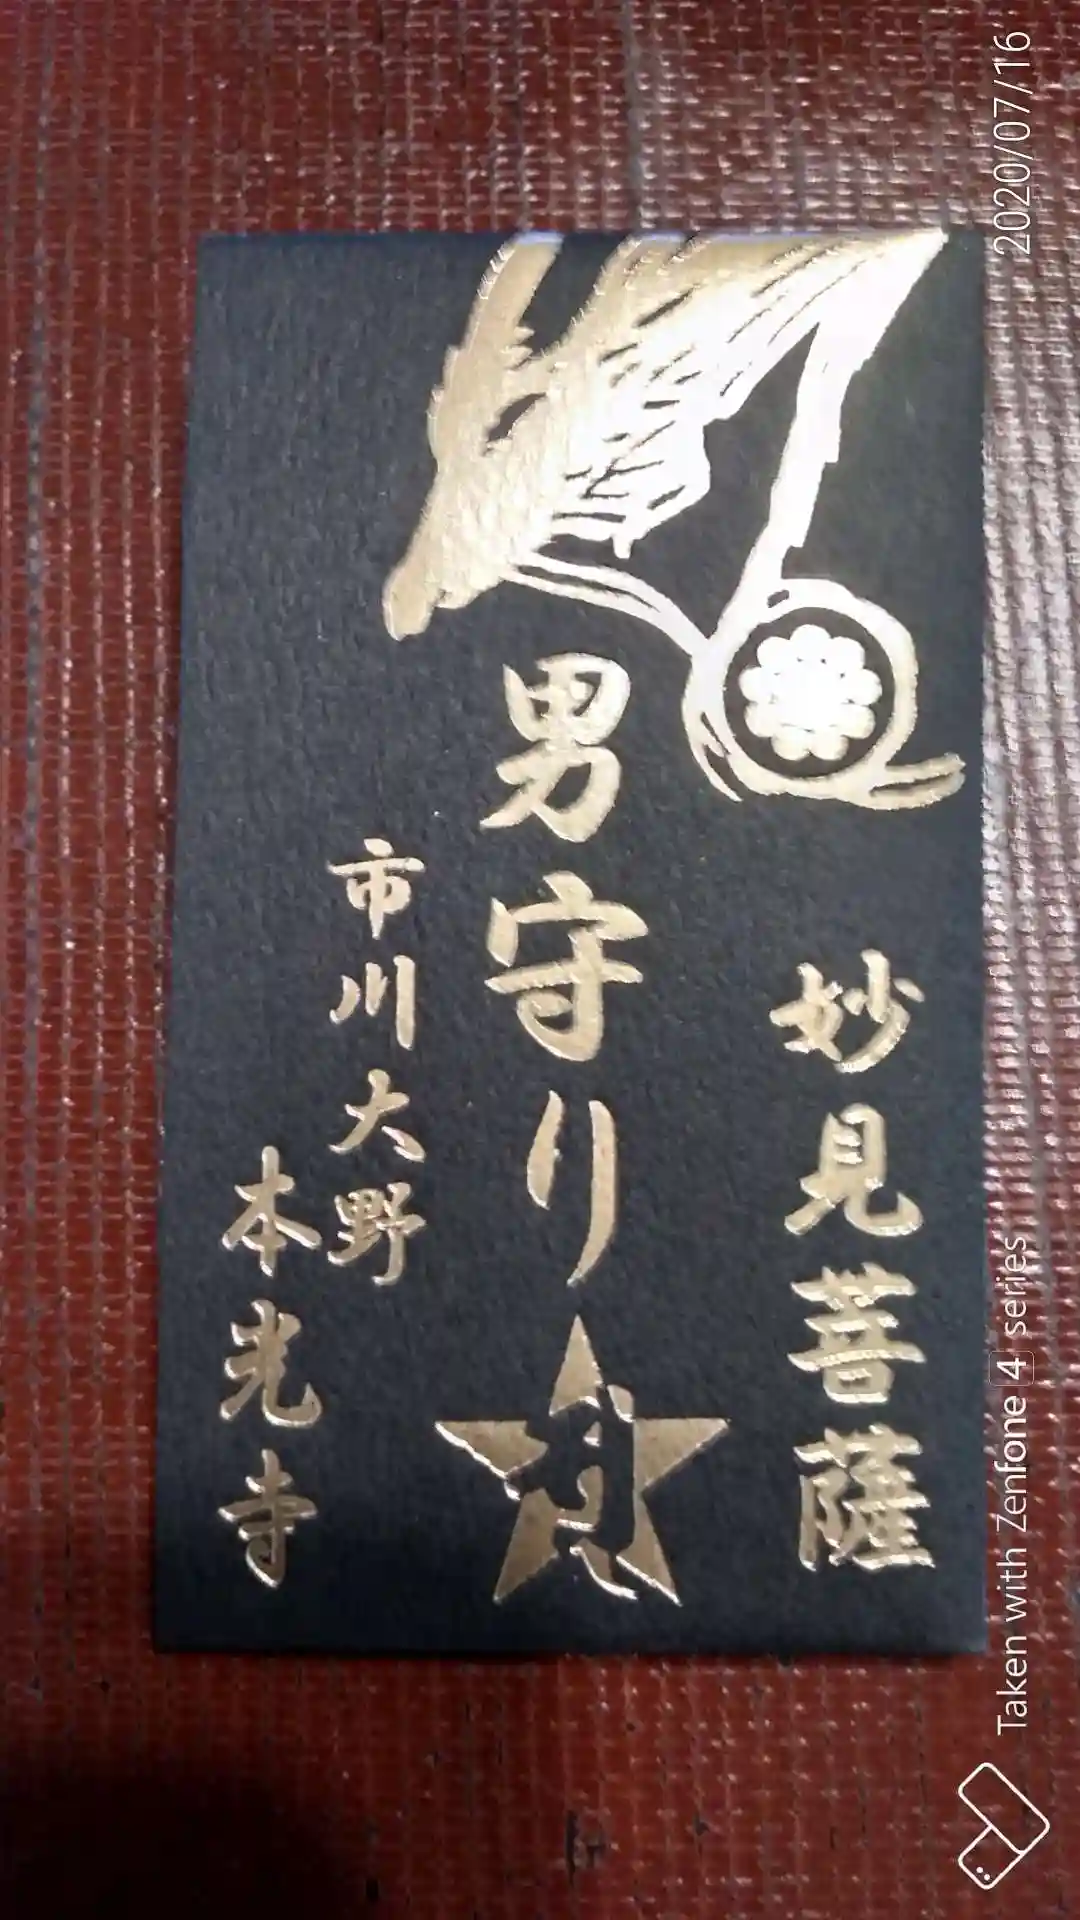 妙見菩薩
男守り
市川大野
本光寺
Taken with Zenfone 4 series
2020/07/16